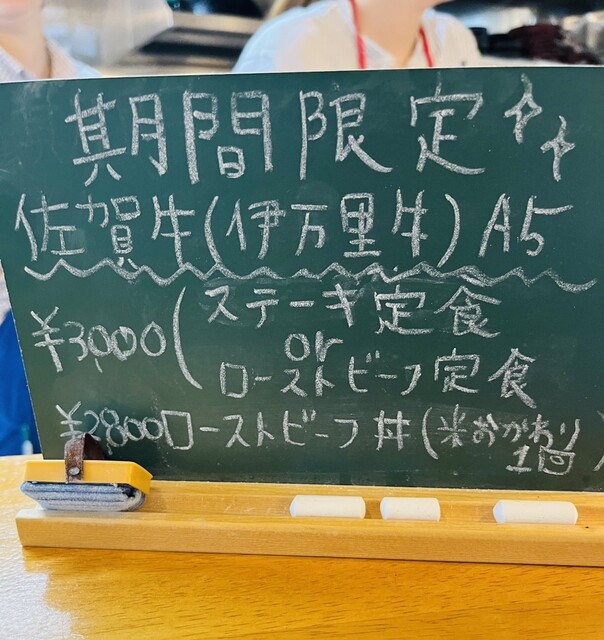 期間限定
佐賀牛(伊万里牛)A5
ステーキ定食
¥3,000( or
ローストビーフ定食
¥2,800ローストビーフ丼(米おかわり
1回)